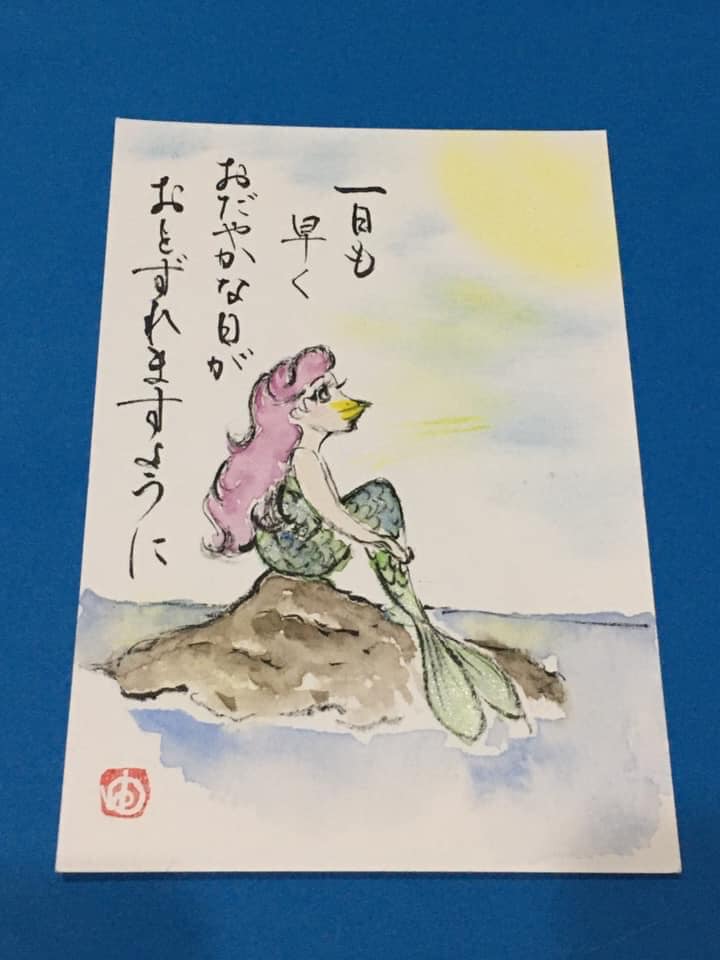 一日も
早く
おだやかな日が
おとずれますように
ゆ